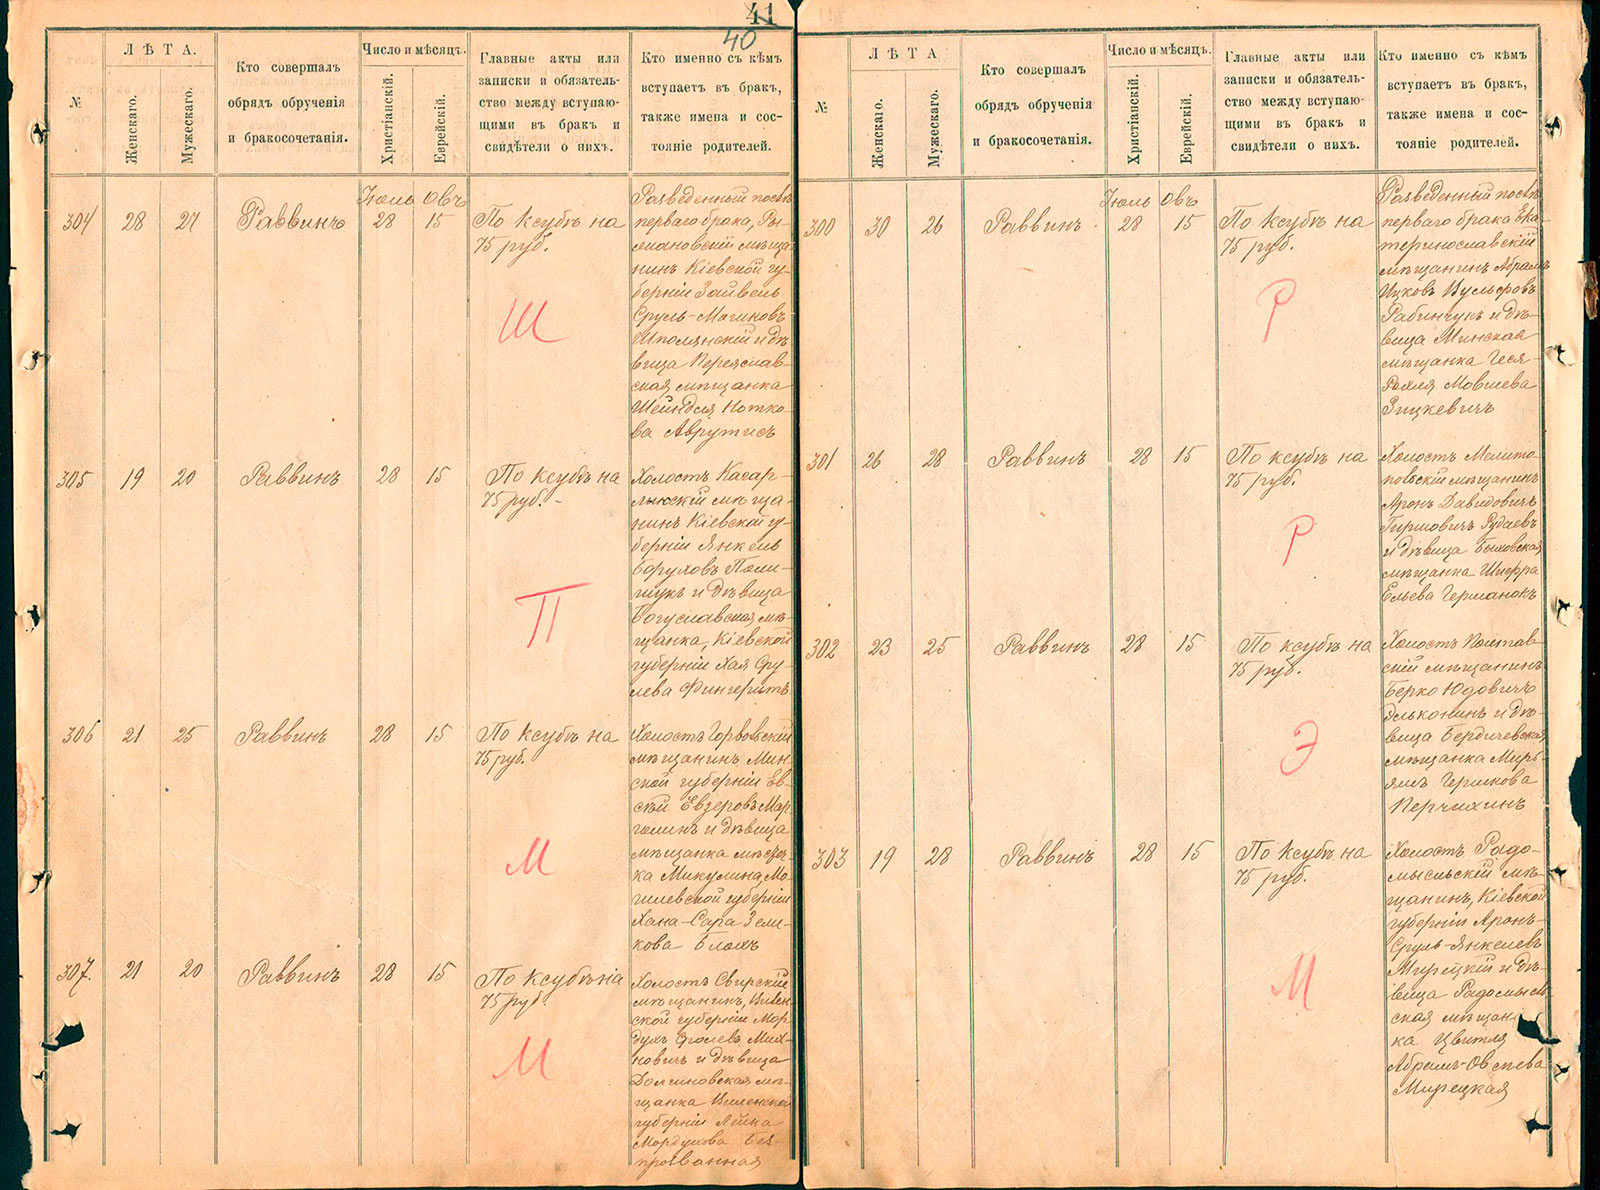 41
40
№
ЛѢТА.
Женскаго.
Мужескаго.
Кто совершалъ
обрядъ обрученія
и бракосочетанія.
Число и мѣсяцъ.
Христіанскій.
Еврейскій.
Главные акты или
записки и обязатель-
ство между вступаю-
щими въ бракъ и
свидѣтели о нихъ.
Кто именно съ кѣмъ
вступаетъ въ бракъ,
также имена и сос-
тояніе родителей.
Іюль Овъ
304 28 27 Раввинъ 28 15
По ксубѣ на
75 руб.
Ш
Разведенный послѣ
перваго брака,
мѣща-
нинъ Кіевской гу-
берніи Зайвель
Сруль-
Шполянскій и дѣ-
вица Переяслав-
ская мѣщанка
Шейндля Нотко-
ва Аврутисъ
305 19 20 Раввинъ 28 15
По ксубѣ на
75 руб.
П
Холостъ Кагар-
лыкскій мѣща-
нинъ Кіевской гу-
берніи Янкель
Боруховъ Поли-
щукъ и дѣвица
Богуславская мѣ-
щанка, Кіевской
губерніи Хая Сру-
лева Фингеритъ
306 21 25 Раввинъ 28 15
По ксубѣ на
75 руб.
М
Холостъ Горвовскій
мѣщанинъ Мин-
ской губерніи Ев-
сѣй Евзеровъ Мар-
голинъ и дѣвица
мѣщанка мѣстеч-
ка Микулина Мо-
гилевской губерніи
Хана-Сара Зели-
кова Блохъ
307. 21 20 Раввинъ 28 15
По ксубѣ на
75 руб.
М
Холостъ Свирскій
мѣщанинъ, Вилен-
ской губерніи Мор-
духъ Мих-
новичъ и дѣвица
Долгиновская мѣ-
щанка Виленской
губерніи Лейка
Мордухова Без-
прозванная
№
ЛѢТА
Женскаго.
Мужескаго.
Кто совершалъ
обрядъ обрученія
и бракосочетанія.
Число и мѣсяцъ.
Христіанскій.
Еврейскій.
Главные акты или
записки и обязатель-
ство между вступаю-
щими въ бракъ и
свидѣтели о нихъ.
Кто именно съ кѣмъ
вступаетъ въ бракъ,
также имена и сос-
тояніе родителей.
Іюль Овъ
300 30 26 Раввинъ 28 15
По ксубѣ на
75 руб.
Р
Разведенный послѣ
перваго брака Ека-
теринославскій
мѣщанинъ Абрамъ
Ицковъ Вульфовъ
Рабинчукъ и дѣ-
вица Минская
мѣщанка Геся-
Рохля Мовшева
Зицкевичъ
301 26 28 Раввинъ 28 15
По ксубѣ на
75 руб.
Р
Холостъ Мелито-
польскій мѣщанинъ
Аронъ Давидовичъ
Гиршовичъ Рудаевъ
и дѣвица Быховская
мѣщанка Шифра
Ельева Германокъ
302 23 25 Раввинъ 28 15
По ксубѣ на
75 руб.
Э
Холостъ Полтав-
скій мѣщанинъ
Берко Юдовичъ
Эльконинъ и дѣ-
вица Бердичевская
мѣщанка Мирь-
ямъ Гершкова
Перчихинъ
303 19 28 Раввинъ 28 15
По ксубѣ на
75 руб.
М
Холостъ Радо-
мысльскій мѣ-
щанинъ, Кіевской
губерніи Аронъ-
Сруль-Янкелевъ
Мирецкій и дѣ-
вица Радомысль-
ская мѣщан-
ка Цвитля
Абрамъ-Овсѣева
Мирецкая